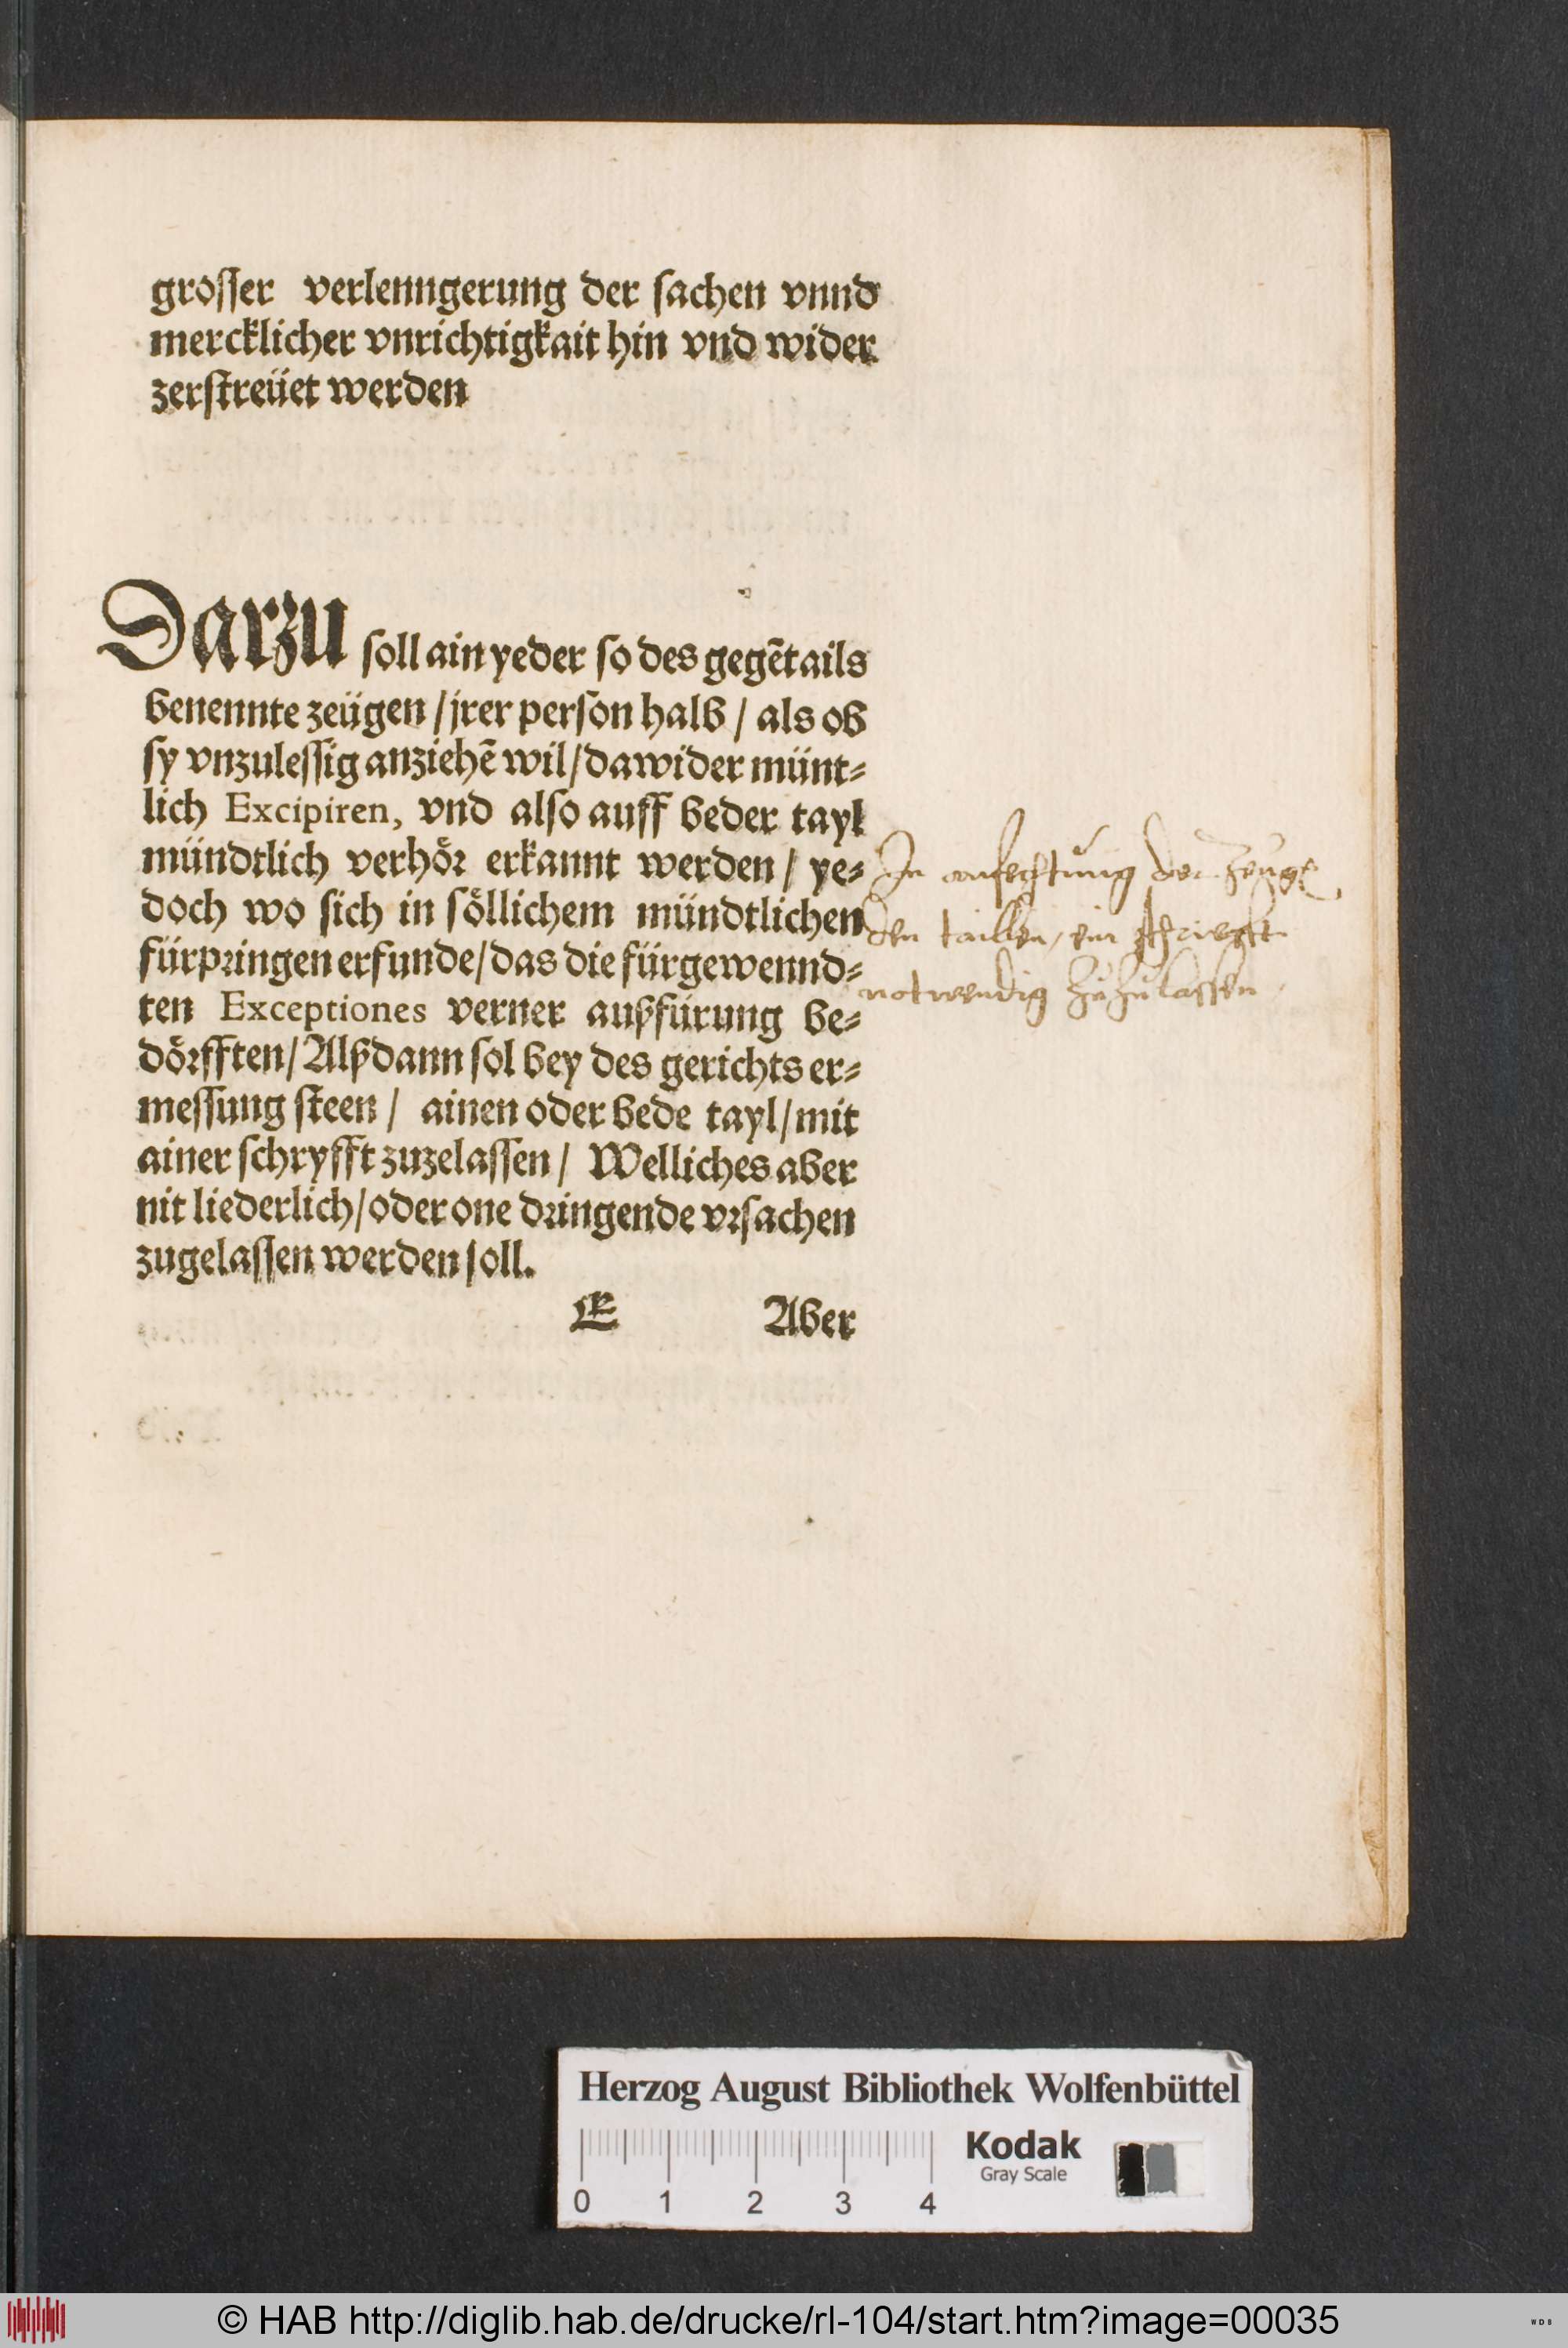 grosser verlenngerung der sachen vnnd
mercklicher vnrichtigkait hin vnd wider
zerstreüet werden
Darzu soll ain yeder so des gegẽtails
benennte zeügen / jrer person halb / als ob
sy vnzulessig anziehẽ wil / dawider münt⸗
lich Excipiren, vnd also auff beder tayl
mündtlich verhoͤr erkannt werden / ye⸗
doch wo sich in soͤllichem mündtlichen
fürpringen erfunde / das die fürgewennd⸗
ten Exceptiones verner außfürung be⸗
doͤrfften / Alßdann sol bey des gerichts er⸗
messung steen / ainen oder bede tayl / mit
ainer schryfft zuzelassen / Welliches aber
nit liederlich / oder one dringende vrsachen
zugelassen werden soll.
E Aber
In anfechtung der Zeuge
den taillen, ein
notwendig Zuzulassen
Herzog August Bibliothek Wolfenbüttel
Kodak
Gray Scale
0 1 2 3 4
© HAB http://diglib.hab.de/drucke/rl-104/start.htm?image=00035
WDB